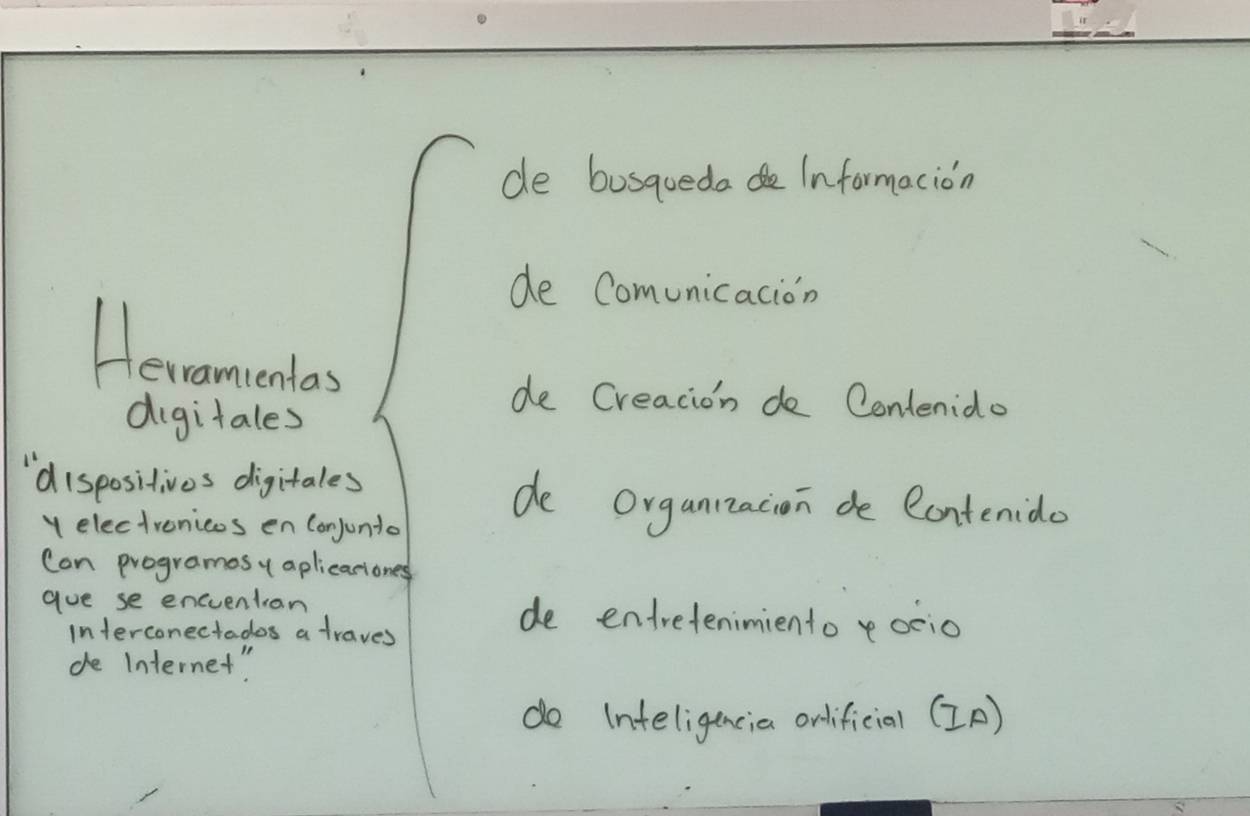 Herramientas
digitales
"dispositivos digitales
y electronicos en conjunto
Con programas y aplicaciones
que se encuentran
interconectados a traves
de Internet".
de busqueda de Información
de Comunicación
de Creación de Contenido
de Organización de Contenido
de entretenimiento y ocio
de Inteligencia artificial (IA)